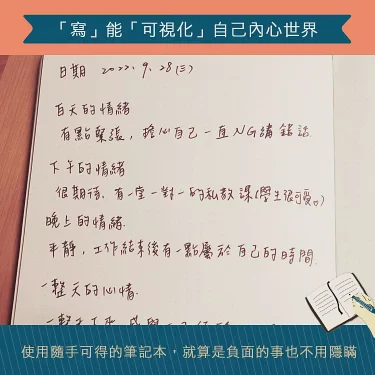 「寫」能「可視化」自己內心世界
日期 2022.9.28(三)
白天的情緒
有點緊張，擔心自己一直NG講錯話
下午的情緒
很期待，有一堂一對一的私教課(學生很可愛)
晚上的情緒
平靜，工作結束後有一點屬於自己的時間
一整天的心情
使用隨手可得的筆記本，就算是負面的事也不用隱瞞